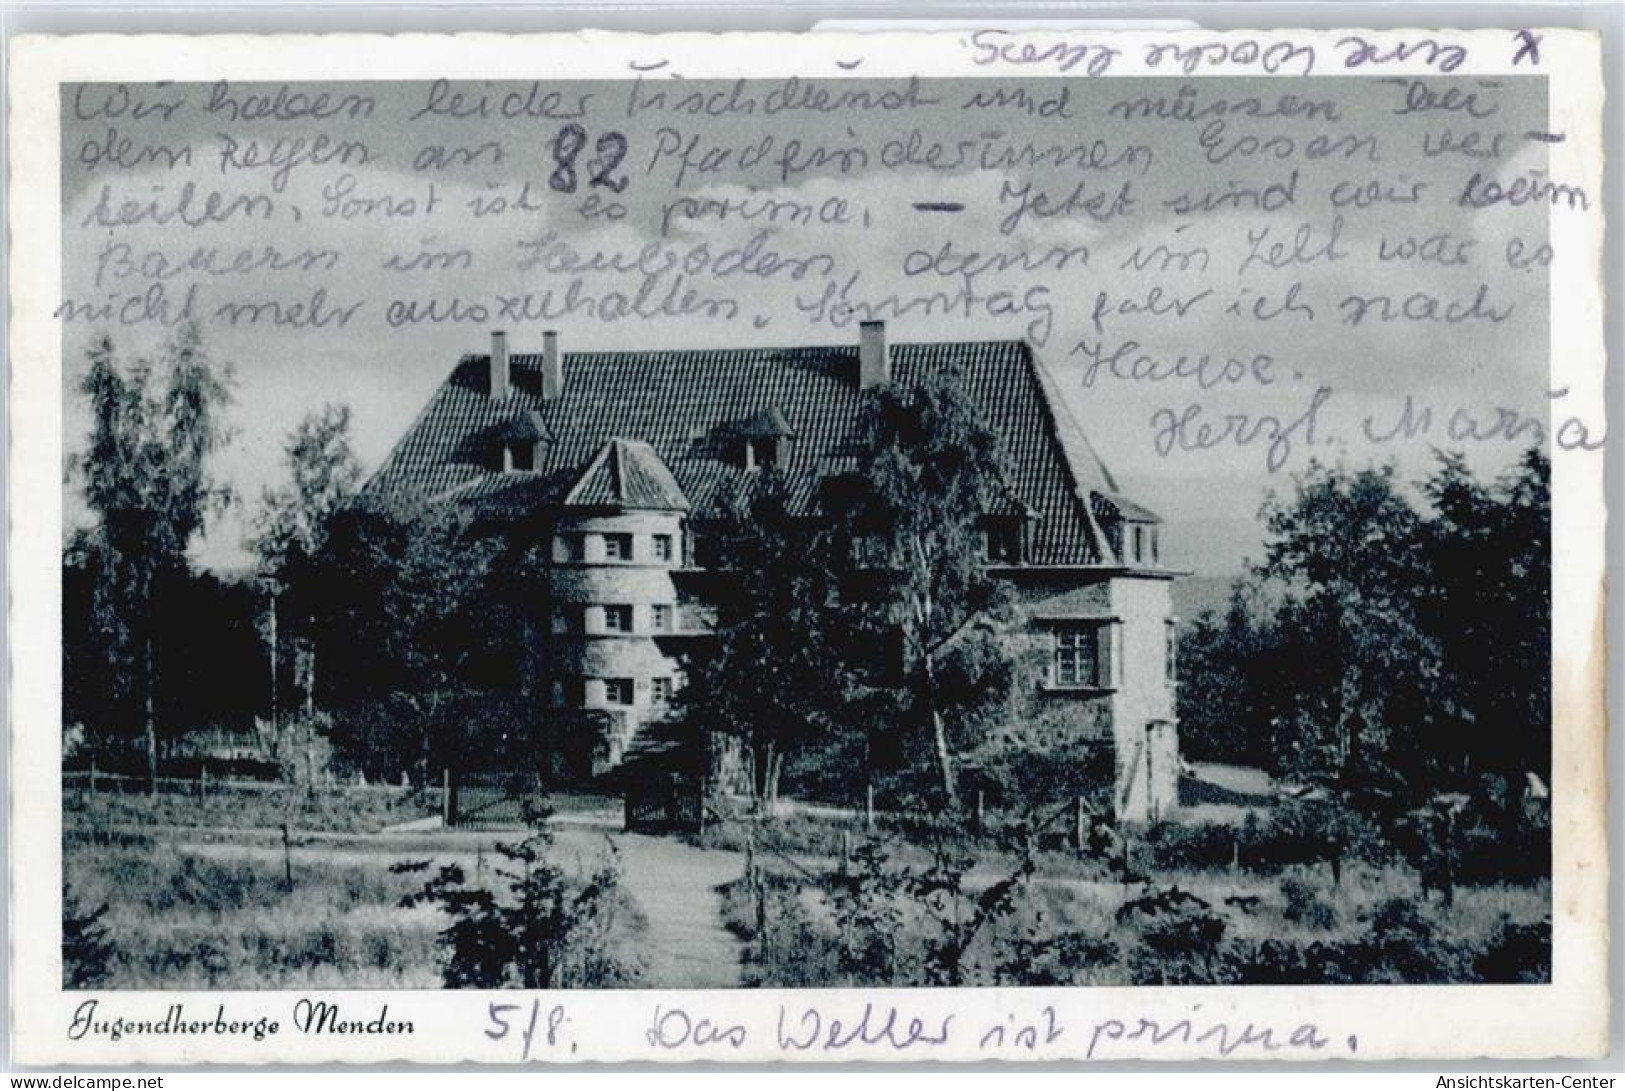 x eine Woche
Wir haben leider Tischdienst und müssen bei
dem Regen an 82 Pfadfinderinnen Essen ver-
teilen. Sonst ist es prima. — Jetzt sind wir beim
Bauern im Heuboden, denn im Zelt war es
nicht mehr auszuhalten. Sonntag fahr ich nach
Hause.
Herzl. Maria
Jugendherberge Menden
5/8. Das Wetter ist prima.
Ansichtskarten-Center
https://www.delcampe.net